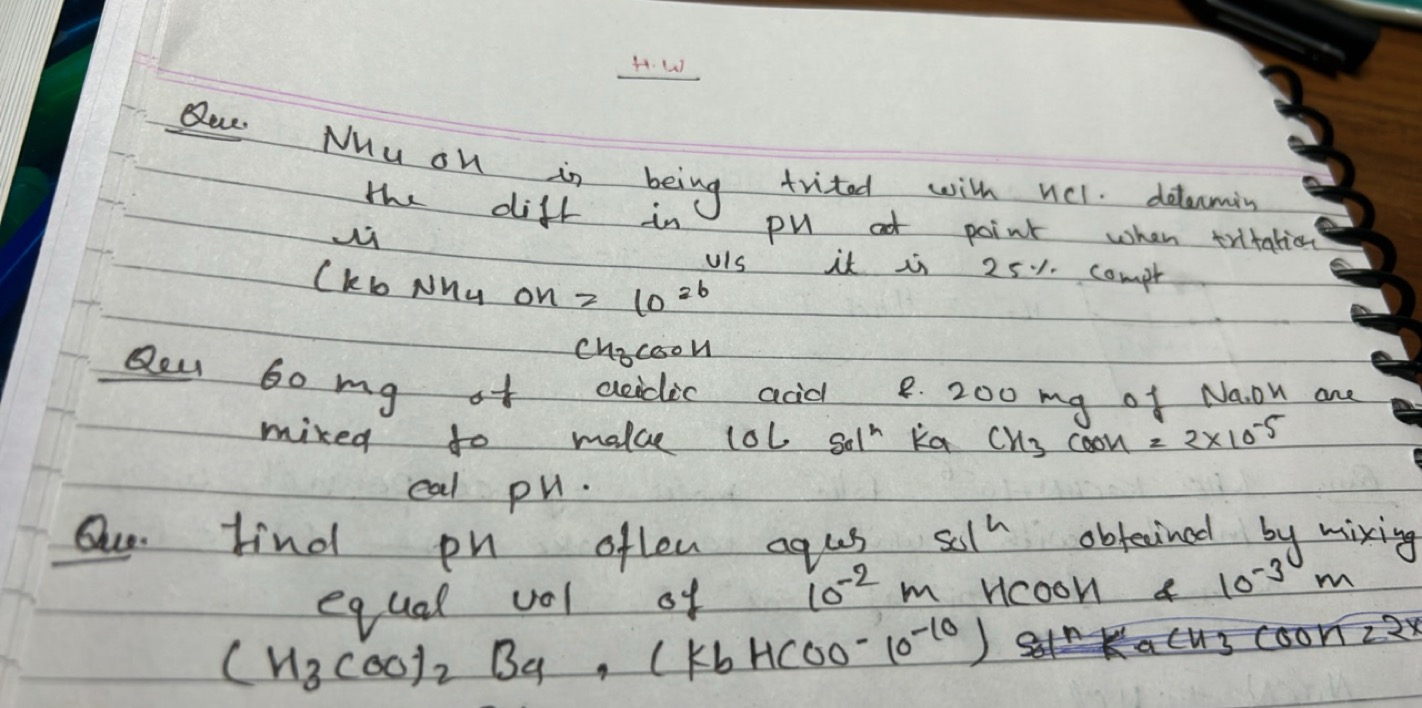 H.W
Que. NH4 OH is being trited with HCl. determin
the diff in pH at point when tritation
is v/s it is 25% compt
(kb NH4 OH = 10
CH3COOH
Que 60 mg of acidic acid & 200 mg of NaOH are
mixed to make 10L solⁿ Ka CH3 COOH = 2×10⁻⁵
cal pH.
Que. find pH of aqus solⁿ obtained by mixing
equal vol of 10⁻² m HCOOH & 10⁻³ m
(H3COO)2 Ba , (kb HCOO⁻ 10⁻¹⁰) solⁿ Ka CH3 COOH = 2×